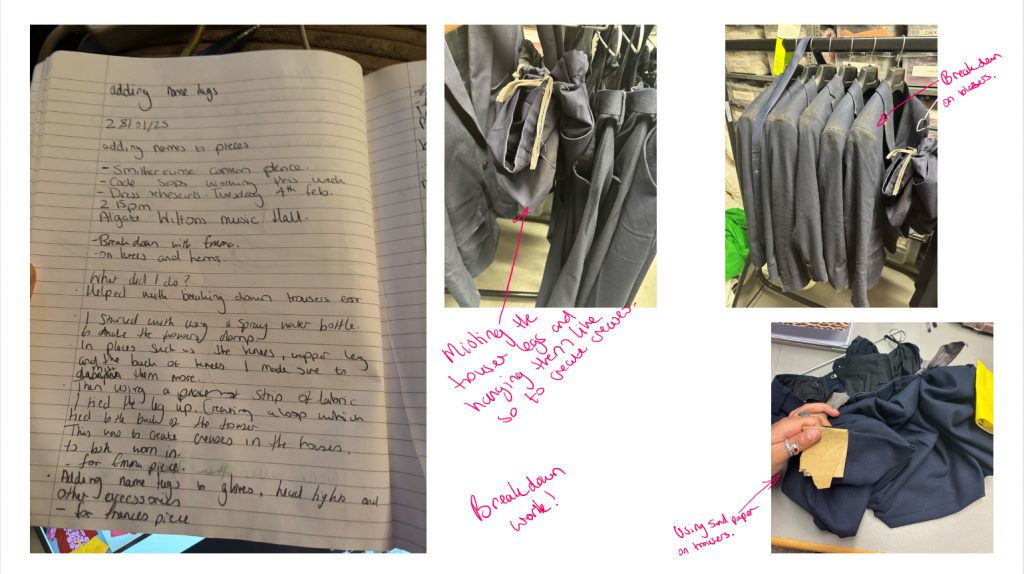 adding name tags
28/01/25
adding names to pieces
- Dress rehearsals Tuesday 4th feb.
2 15pm
Algate Wiltons music Hall.
- Breakdown with Emma.
- on knees and hems.
What did I do?
Helped with breaking down trousers
I started with using a spray water bottle.
to make the trousers damp.
In places such as the knees, upper leg
and the back of knees I made sure to
them more.
Then using a strip of fabric
I tied the leg up. Creating a loop which
tied to the back of the trouser
This was to create creases in the trouses,
to look worn in.
- for Emma piece.
Adding name tags to gloves, head lights and
other
- for frances piece
Misting the
trouser legs and
hanging them like
so to create creases.
Breakdown
on blazers.
Breakdown
work!
Using sand paper
on trousers.